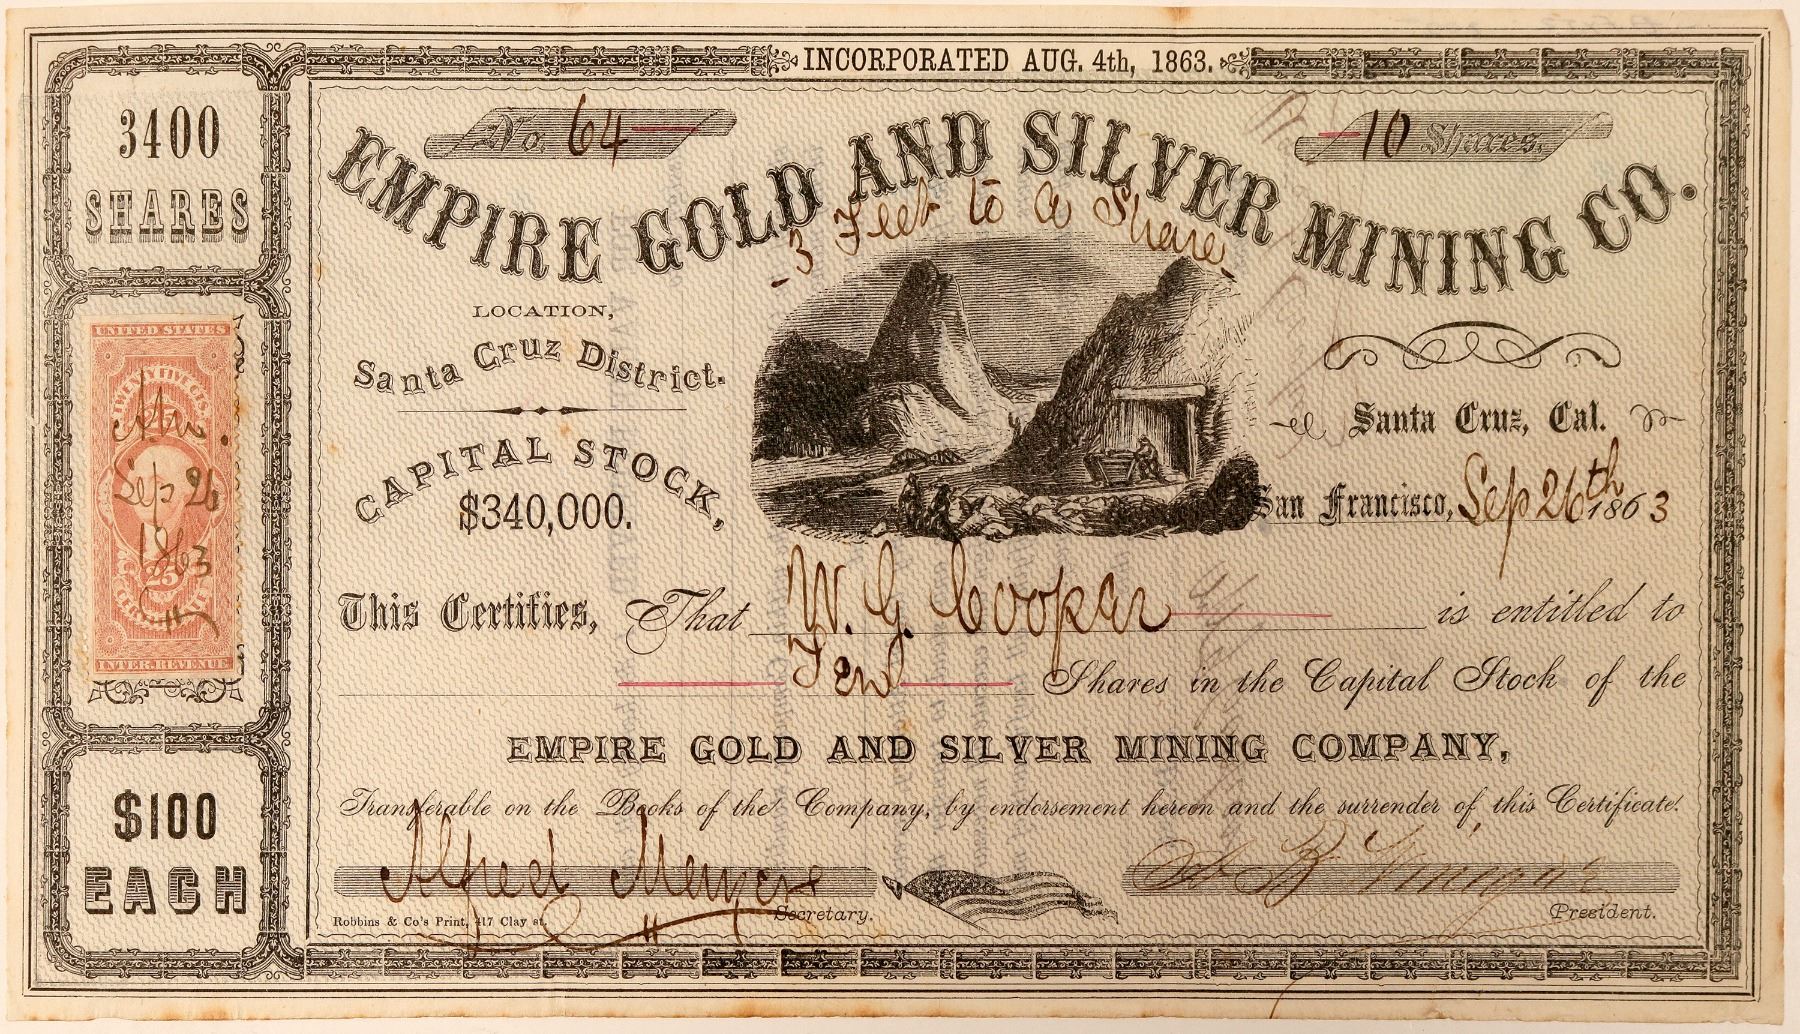 INCORPORATED AUG. 4th, 1863.
3400
SHARES
No. 64
10 Shares.
EMPIRE GOLD AND SILVER MINING CO.
3 Feet to a Share
LOCATION,
Santa Cruz District.
CAPITAL STOCK,
$340,000.
Santa Cruz, Cal.
San Francisco, Sep 26th 1863
UNITED STATES
TWENTY FIVE CTS.
Sep 26
1863
25
INTER. REVENUE
This Certifies, That W. G. Cooper is entitled to
Ten Shares in the Capital Stock of the
EMPIRE GOLD AND SILVER MINING COMPANY,
Transferable on the Books of the Company, by endorsement hereon and the surrender of this Certificate.
$100
EACH
Alfred
Secretary.
President.
Robbins & Co's Print, 417 Clay st.